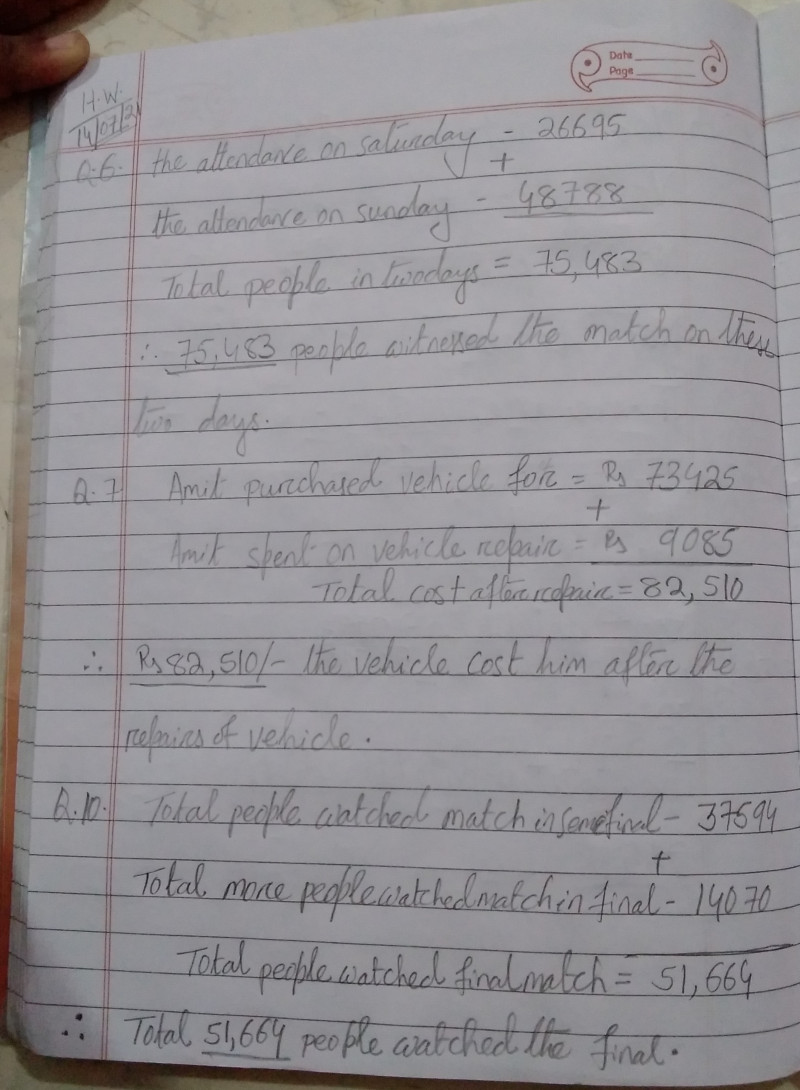 Date
Page
H.W.
14/07/21
Q.6. the attendance on saturday - 26695
+
the attendance on sunday - 48788
Total people in two days = 75,483
∴ 75,483 people witnessed the match on these
two days.
Q.7 Amit purchased vehicle for = Rs 73425
+
Amit spent on vehicle repair = Rs 9085
Total cost after repair = 82,510
∴ Rs 82,510/- the vehicle cost him after the
repairs of vehicle.
Q.10. Total people watched match in semefinal - 37594
+
Total more people watched match in final - 14070
Total people watched final match = 51,664
∴ Total 51,664 people watched the final.